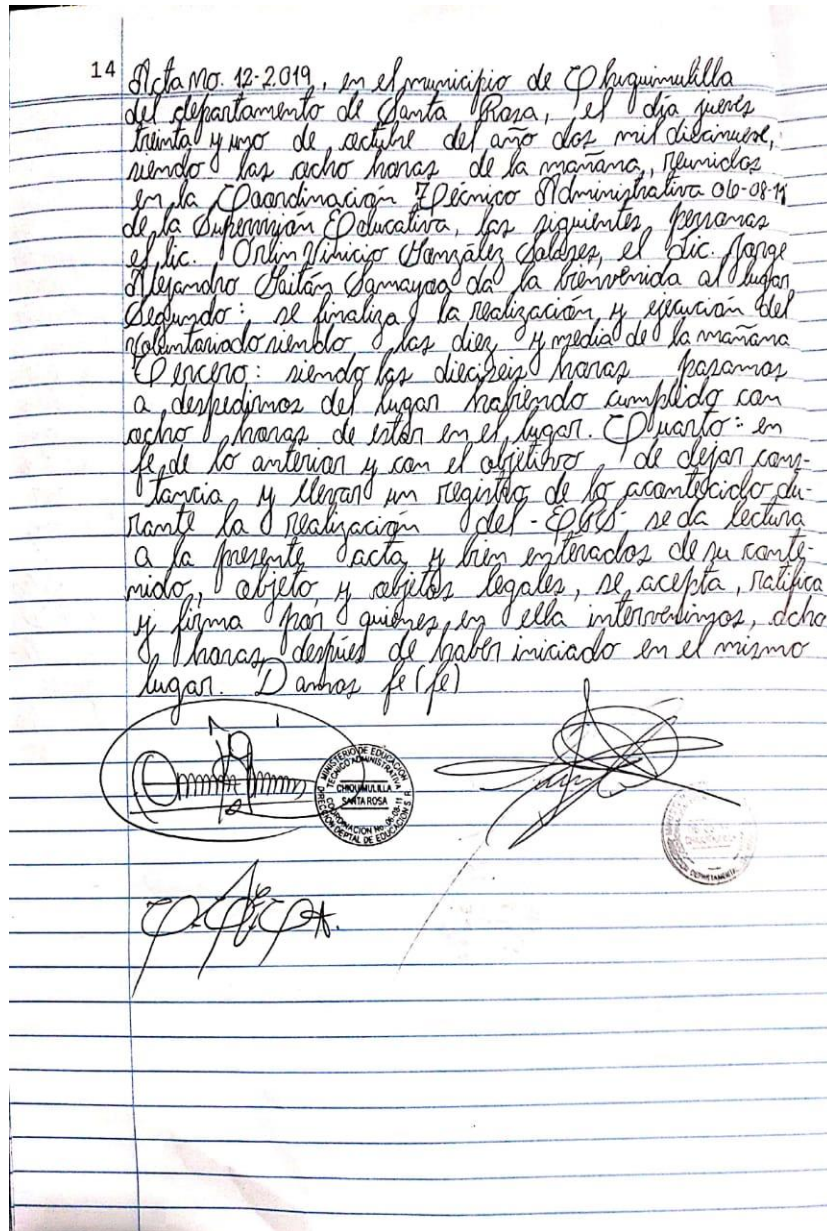 14
Acta No. 12-2,019, en el municipio de Chiquimulilla
del departamento de Santa Rosa, el día jueves
treinta y uno de octubre del año dos mil diecinueve,
siendo las ocho horas de la mañana, reunidos
en la Coordinación Técnico Administrativa 06-08-11
de la Supervisión Educativa, las siguientes personas
el lic. Orlin Vinicio González Salazar, el Lic. Jorge
Alejandro Gaitán Samayoa da la bienvenida al lugar
Segundo: se finaliza la realización y ejecución del
voluntariado siendo las diez y media de la mañana
Tercero: siendo las dieciseis horas pasamos
a despedirnos del lugar habiendo cumplido con
ocho horas de estar en el lugar. Cuarto: en
fe de lo anterior y con el objetivo de dejar cons-
tancia y llevar un registro de lo acontecido du-
rante la realización del -EPS- se da lectura
a la presente acta y bien enterados de su conte-
nido, objeto y objetos legales, se acepta, ratifica
y firma por quienes en ella intervenimos, ocho
horas después de haber iniciado en el mismo
lugar. Damos fe (fe)
MINISTERIO DE EDUCACION
TECNICO ADMINISTRATIVA
CHIQUIMULILLA
SANTA ROSA
COORDINACION No. 06-08-11
DIRECCION DEPTAL DE EDUCACION S. R.